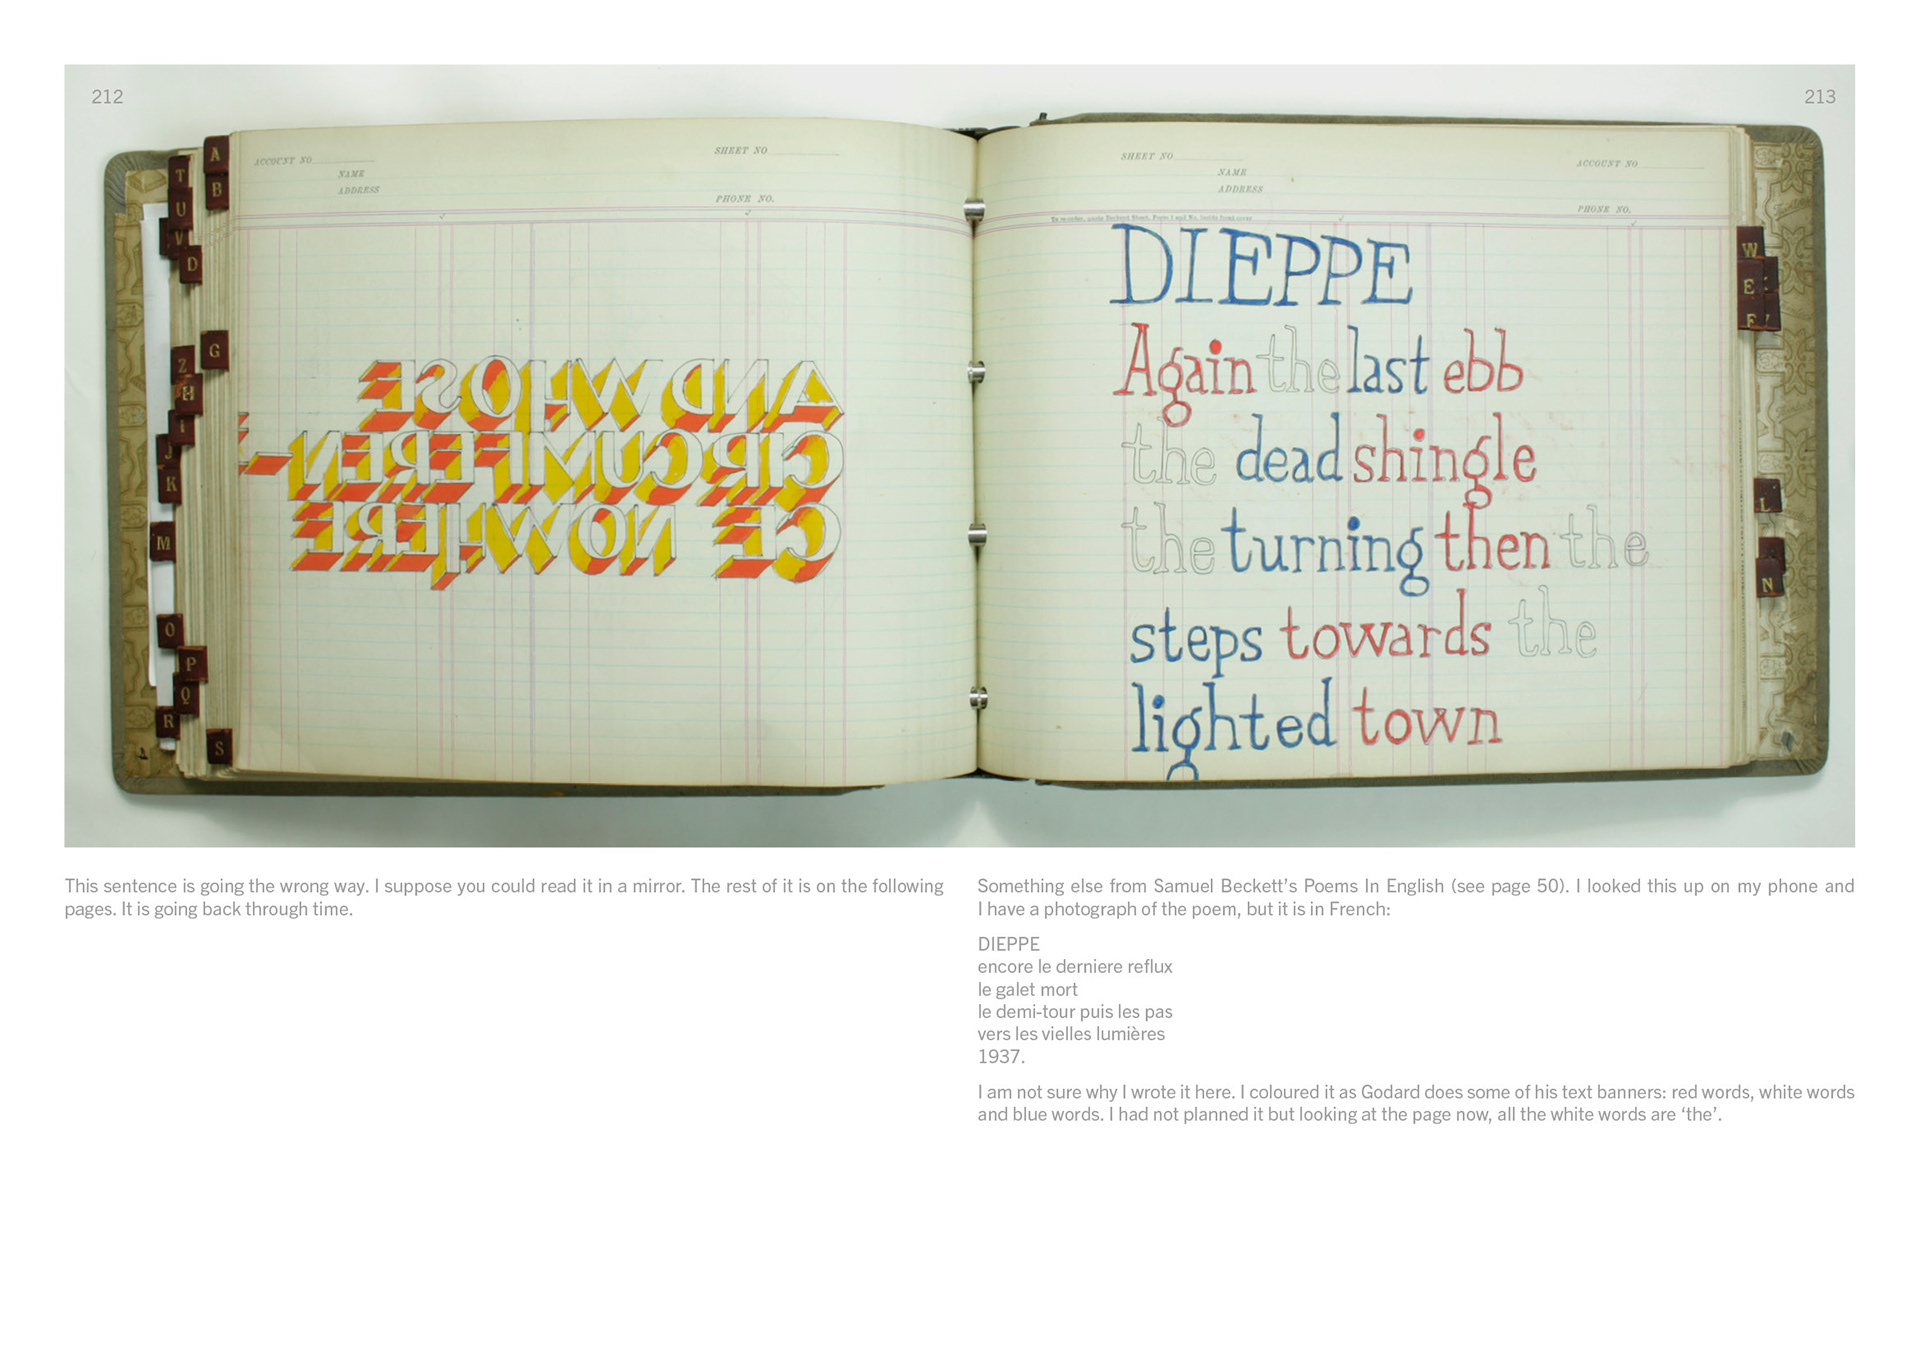 212
213
A
T
B
U
V
D
G
Z
H
I
J
K
M
O
P
Q
R
S
ACCOUNT NO
SHEET NO
NAME
ADDRESS
PHONE NO.
AND WHOSE
CIRCUMFEREN-
CE NOWHERE
SHEET NO
ACCOUNT NO
NAME
ADDRESS
PHONE NO.
DIEPPE
Again the last ebb
the dead shingle
the turning then the
steps towards the
lighted town
W
E
F
L
N
This sentence is going the wrong way. I suppose you could read it in a mirror. The rest of it is on the following
pages. It is going back through time.
Something else from Samuel Beckett’s Poems In English (see page 50). I looked this up on my phone and
I have a photograph of the poem, but it is in French:
DIEPPE
encore le derniere reflux
le galet mort
le demi-tour puis les pas
vers les vielles lumières
1937.
I am not sure why I wrote it here. I coloured it as Godard does some of his text banners: red words, white words
and blue words. I had not planned it but looking at the page now, all the white words are ‘the’.